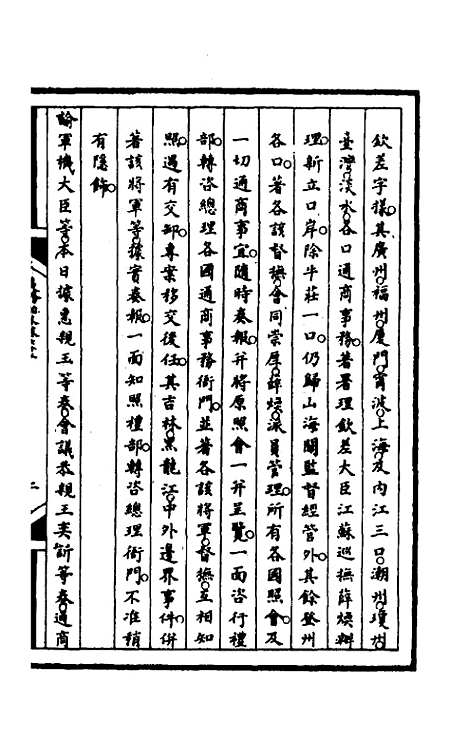 欽差字樣。其廣州。福州。廈門。甯波。上海及內江三口。潮州。瓊州。
臺灣。淡水。各口通商事務。著署理欽差大臣江蘇巡撫薛煥辦
理。新立口岸。除牛莊一口。仍歸山海關監督經管外。其餘登州
各口。著各該督撫。會同崇厚。薛煥。派員管理。所有各國照會。及
一切通商事宜。隨時奏報。并將原照會一并呈覽。一面咨行禮
部。轉咨總理各國通商事務衙門。並著各該將軍。督撫。互相知
照。遇有交卸。專案移交後任。其吉林。黑龍江。中外邊界事件。併
著該將軍等。據實奏報。一面知照禮部。轉咨總理衙門。不准稍
有隱飾。
諭軍機大臣等。本日據惠親王等奏。會議恭親王奕訢等奏。通商